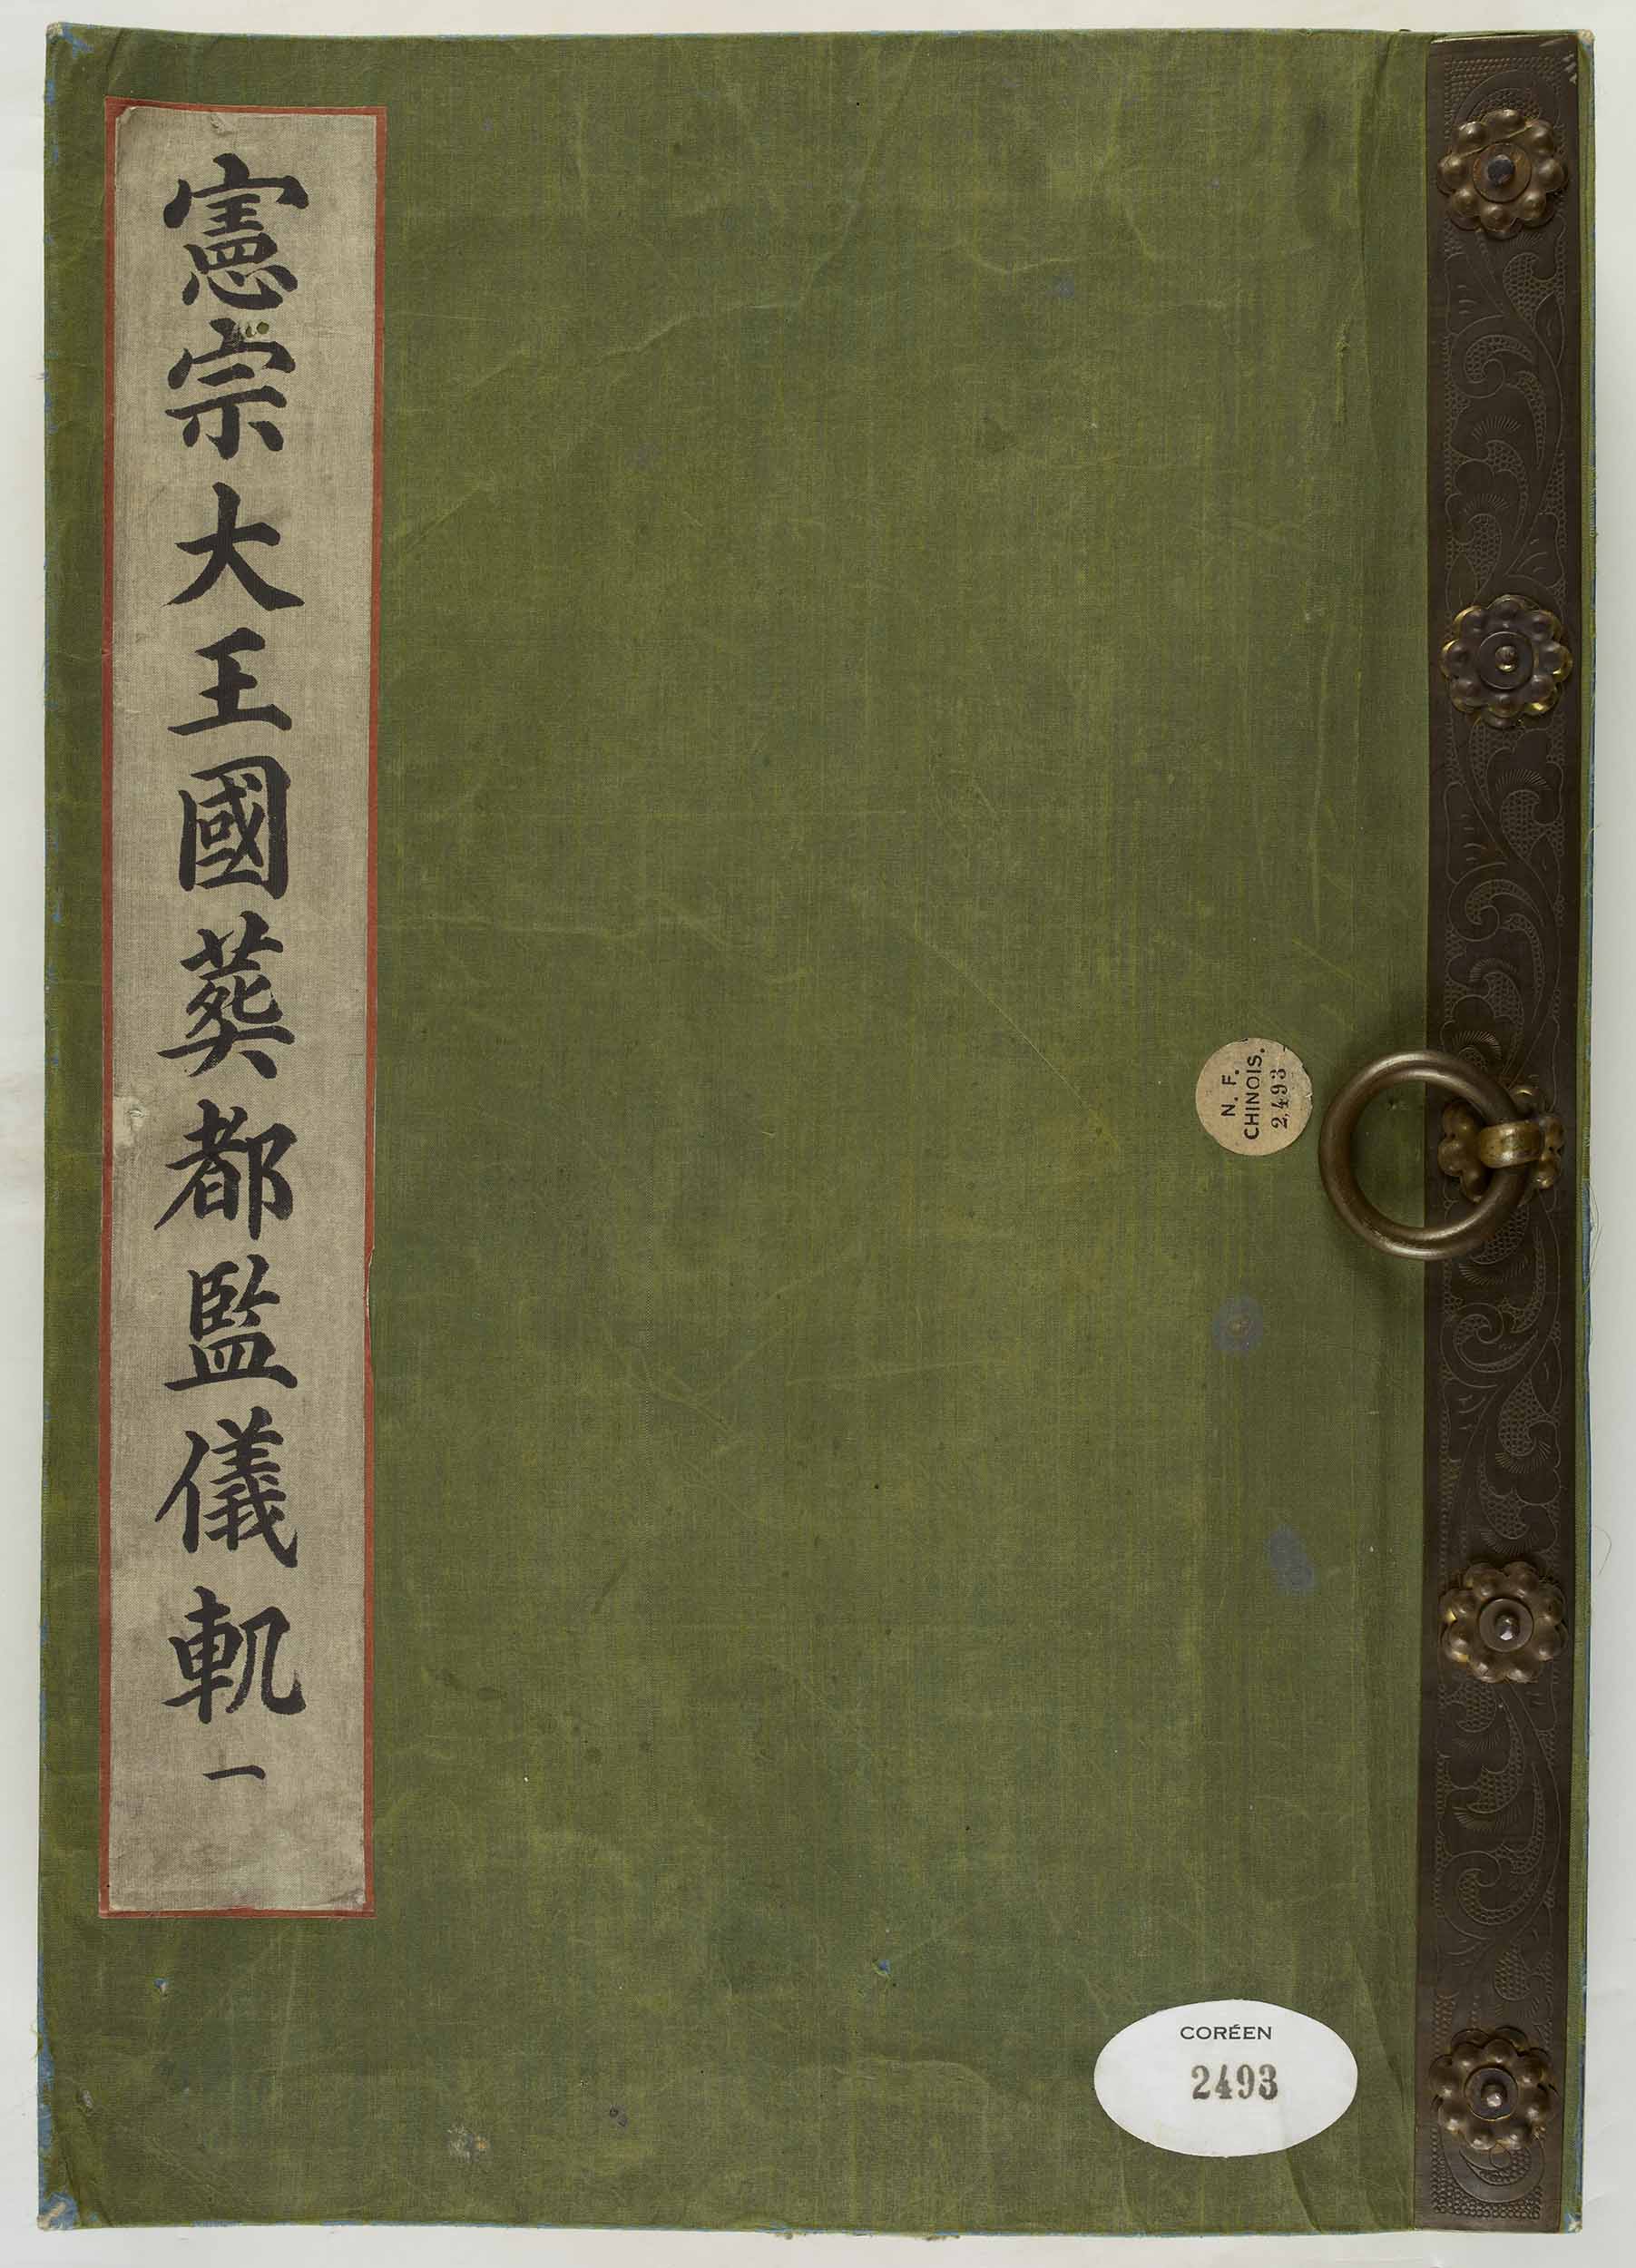 憲宗大王國葬都監儀軌一
N. F.
CHINOIS.
2,493
CORÉEN
2493